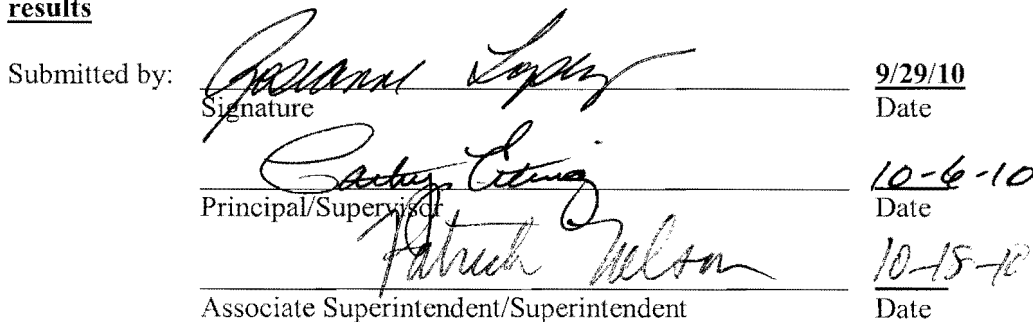 results
Submitted by: Roseanne Lopez 9/29/10
Signature Date
10-6-10
Principal/Supervisor Date
Patrick Nelson 10-15-10
Associate Superintendent/Superintendent Date